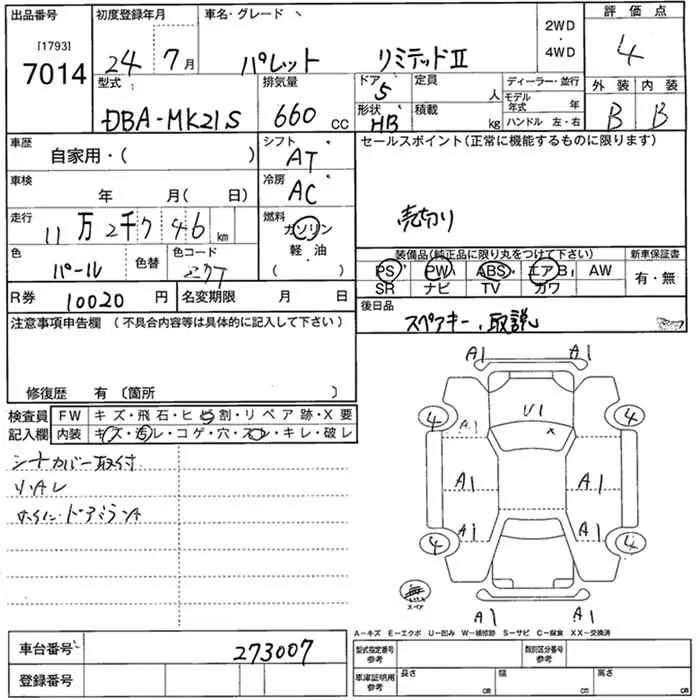 出品番号 初度登録年月 車名・グレード 2WD・4WD 評価点
[1793]
7014 24年 7月 パレット リミテッドⅡ 4
型式 排気量 ドア 定員 ディーラー・並行 外装 内装
DBA-MK21S 660 CC 5 人 モデル年式 年 B B
形状 HB 積載 kg ハンドル 左・右
車歴 自家用・( ) シフト AT セールスポイント(正常に機能するものに限ります)
車検 年 月( 日) 冷房 AC
走行 11万2千746 km 燃料 ガソリン 軽・油 ( ) 売切り
色 パール 色替 色コード
装備品(純正品に限り丸をつけて下さい) 新車保証書
PS PW ABS エアB AW 有・無
SR ナビ TV カワ
R券 10020 円 名変期限 月 日
後日品 スペアキー、取説
注意事項申告欄(不具合内容等は具体的に記入して下さい)
修復歴 有〔箇所 〕
検査員記入欄 FW キズ・飛石・ヒビ割・リペア跡・X要
内装 キズ・汚レ・コゲ・穴・スレ・キレ・破レ
シートカバー取付
小AU
A1 A1
4 U1 4
A1 x
A1 A1
4 A1 A1 4
無 スペア
A1 A1
A-キズ E-エクボ U-凹み W-補修跡 S-サビ C-腐食 XX-交換済
車台番号 273007 型式指定番号 参考 類別区分番号 参考
登録番号 車庫証明用 参考 長さ cm 幅 cm 高さ cm